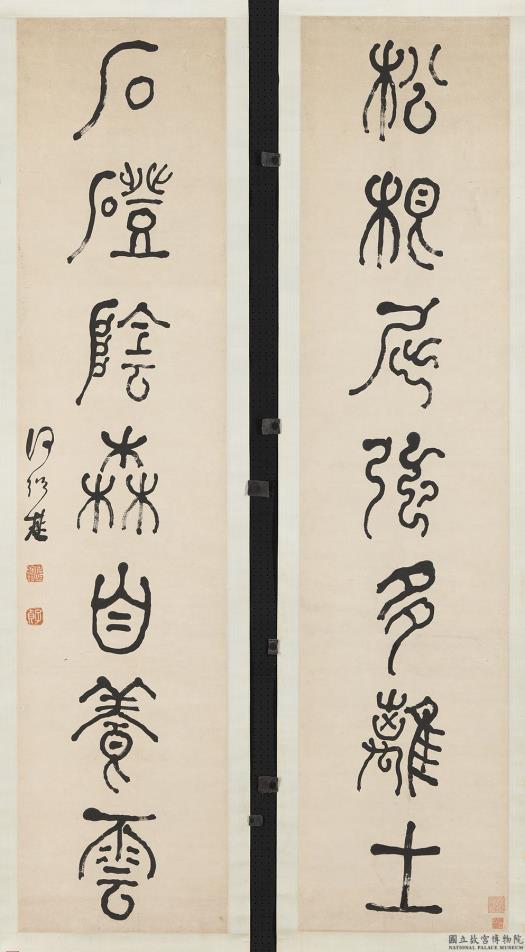 松根屈強多離土
石磴陰森自養雲
何紹基
國立故宮博物院
NATIONAL PALACE MUSEUM